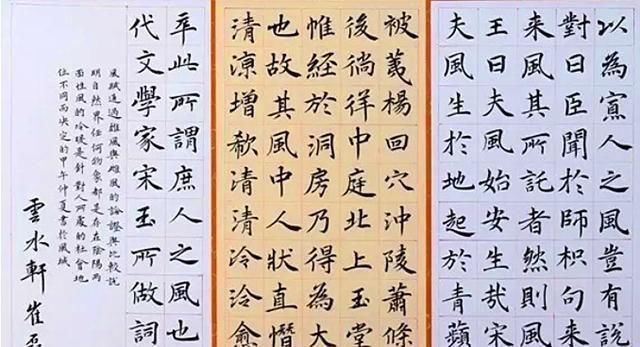 以為寡人之風豈有說
對曰臣聞於師枳句來
來風其所託者然則風
王曰夫風始安生哉宋
夫風生於地起於青蘋
被荑楊回穴沖陵蕭條
後徜徉中庭北上玉堂
惟經於洞房乃得為大
也故其風中人狀直憯
清涼增欷清清泠泠愈
卒此所謂庶人之風也
代文學家宋玉所做詞
風賦通過雄風與雌風的論證與比較說
明自然界任何物象都是存在陰陽兩
面性風的冷暖是針對人所處的社會地
位不同而決定的甲午仲夏書於風城
雲水軒崔